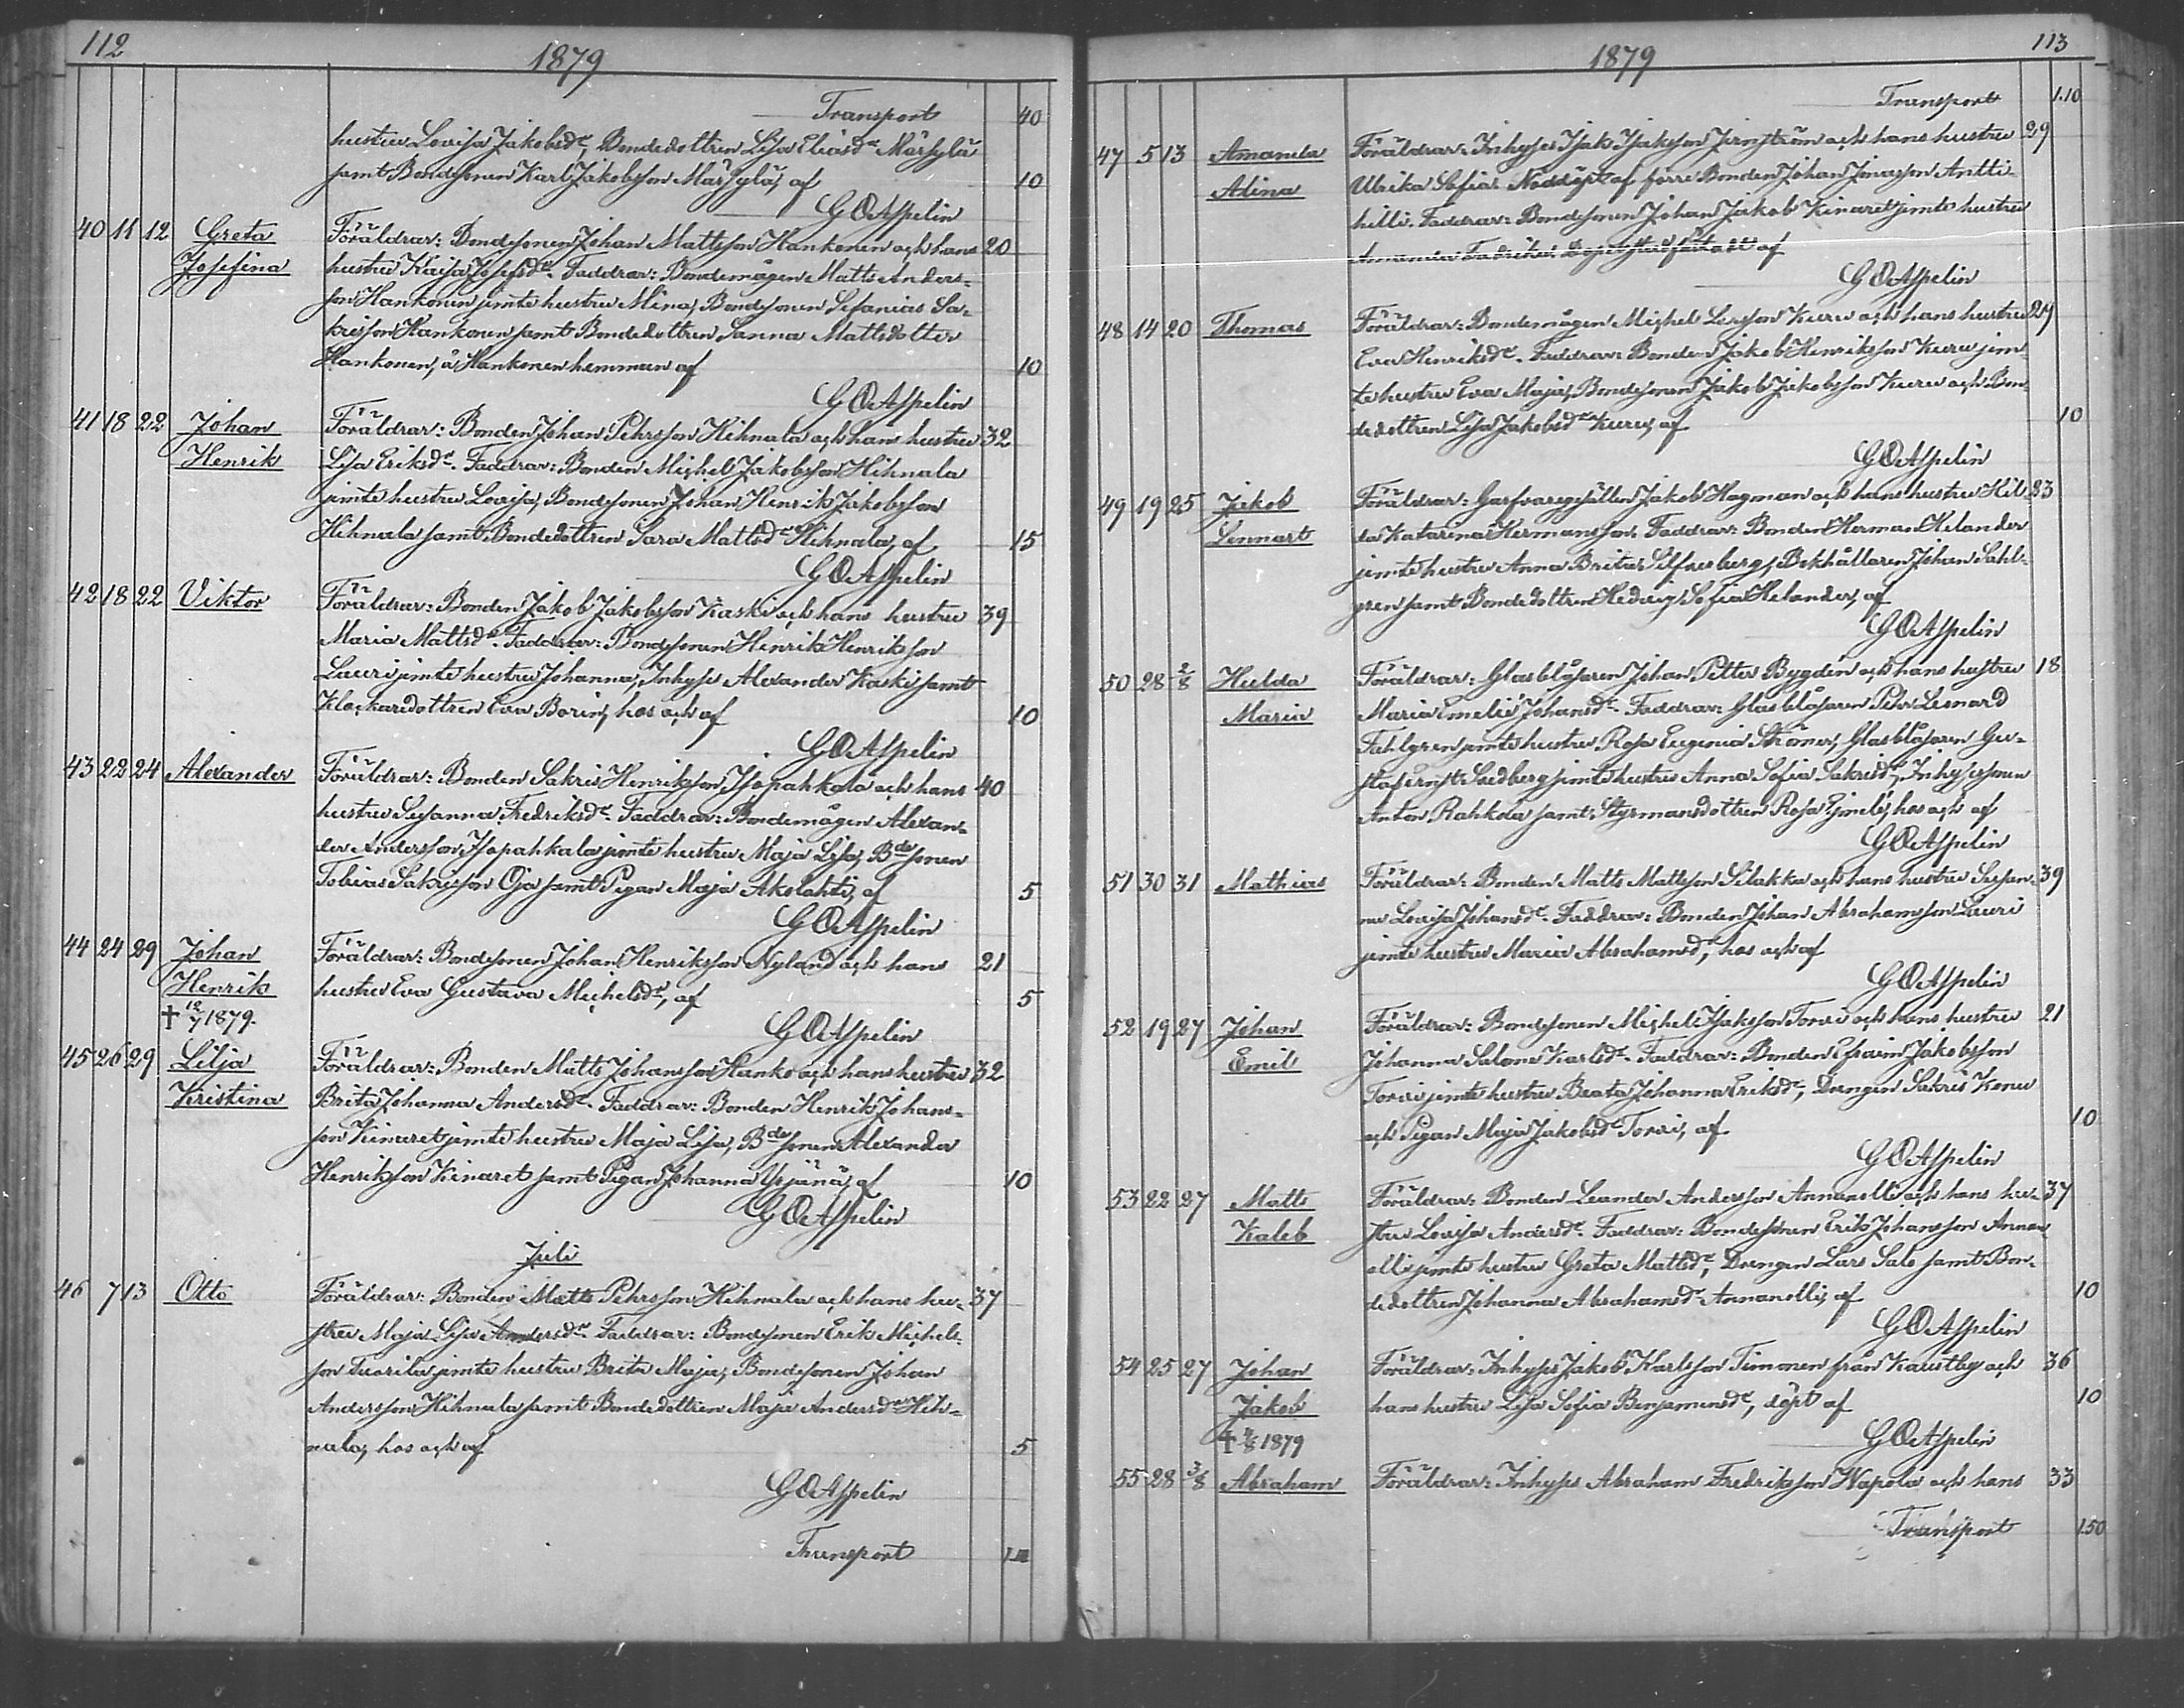 112
1879
Transport 40
hustru Lovisa Jakobsdr, Bondedottren Lisa Eliasdr Märsylä
samt Bondsonen Karl Jakobsson Märsylä, af 10
G O Aspelin
40 11 12 Greta Föräldrar: Bondesonen Johan Mattsson Hankonen och hans 20
Josefina hustru Kaisa Josefsdr. Faddrar: Bondemågen Matts Anders-
son Hankonen jemte hustru Mina, Bondsonen Sefanias Sa-
krisson Hankonen samt Bondedottren Sanna Mattsdotter
Hankonen, å Hankonen hemman af 10
G O Aspelin
41 18 22 Johan Föräldrar: Bonden Johan Pehrsson Hihnala och hans hustru 32
Henrik Lisa Eriksdr. Faddrar: Bonden Michel Jakobsson Hihnala
jemte hustru Lovisa, Bondsonen Johan Henrik Jakobsson
Hihnala samt Bondedottren Sara Mattsdr Hihnala, af 15
G O Aspelin
42 18 22 Viktor Föräldrar: Bonden Jakob Jakobsson Kaski och hans hustru 39
Maria Mattsdr. Faddrar: Bondsonen Henrik Henriksson
Lauri jemte hustru Johanna, Inhyses Alexander Kaski samt
Klockaredottren Eva Borin, hos och af 10
G O Aspelin
43 22 24 Alexander Föräldrar: Bonden Sakris Henriksson Isopahkala och hans 40
hustru Susanna Fredriksdr. Faddrar: Bondemågen Alexan-
der Andersson Isopahkala jemte hustru Maja Lisa, Bdesonen
Tobias Sakrisson Oja samt Pigan Maja Akolahti, af 5
G O Aspelin
44 24 29 Johan Föräldrar: Bondsonen Johan Henriksson Nyland och hans 21
Henrik hustru Eva Gustava Michelsdr, af 5
† 12/7 1879. G O Aspelin
45 26 29 Lilja Föräldrar: Bonden Matts Johansson Hanko och hans hustru 32
Kristina Brita Johanna Andersdr. Faddrar: Bonden Henrik Johans-
son Kinaret jemte hustru Maja Lisa, Bdesonen Alexander
Henriksson Kinaret samt Pigan Johanna Yrjänä, af 10
G O Aspelin
Juli
46 7 13 Otto Föräldrar: Bonden Matts Pehrsson Hihnala och hans hu- 37
stru Maja Lisa Andersdr. Faddrar: Bondsonen Erik Michels-
son Tuorila jemte hustru Brita Maja, Bondesonen Johan
Andersson Hihnala samt Bondedottren Maja Andersdr Hih-
nala, hos och af 5
G O Aspelin
Transport 1.10
113
1879
Transport 1.10
47 5 13 Amanda Föräldrar: Inhyses Isak Isaksson Jernström och hans hustru 29
Adina Ulrika Sofia. Nöddöpt af förre Bonden Johan Jonasson Antti-
hilli. Faddrar: Bondsonen Johan Jakob Kinaret jemte hustru
Amanda Fredrika. af
G O Aspelin
48 14 20 Thomas Föräldrar: Bondemågen Michel Larsson Kuru och hans hustru 29
Eva Henriksdr. Faddrar: Bonden Jakob Henriksson Kuru jem-
te hustru Eva Maja, Bondsonen Jakob Jakobsson Kuru och Bon-
dedottren Lisa Jakobsdr Kuru, af 10
G O Aspelin
49 19 25 Jakob Föräldrar: Garfvaregesällen Jakob Hagman och hans hustru Hil- 23
Lennart da Katarina Hermansson. Faddrar: Bonden Herman Helander
jemte hustru Anna Brita Silfversberg, Bokhållaren Johan Sahl-
gren samt Bondedottren Hedvig Sofia Helander, af
G O Aspelin
50 28 2/8 Hulda Föräldrar: Glasblåsaren Johan Petter Bygdén och hans hustru 18
Maria Maria Emelie Johansdr. Faddrar: Glasblåsaren Pehr Leonard
Fahlgren jemte hustru Rosa Eugenia Strömer, Glasblåsaren Gu-
staf Ernst Sundberg jemte hustru Anna Sofia Sakrisdr, Inhysessonen
Anton Rahkola samt Styrmansdottren Rosa Gimeli, hos och af
G O Aspelin
51 30 31 Mathias Föräldrar: Bonden Matts Mattsson Silakka och hans hustru Susan- 39
na Lovisa Johansdr. Faddrar: Bonden Johan Abrahamsson Lauri
jemte hustru Maria Abrahamsdr, hos och af
G O Aspelin
52 19 27 Johan Föräldrar: Bondsonen Michel Isaksson Torvi och hans hustru 21
Emil Johanna Saloma Karlsdr. Faddrar: Bonden Efraim Jakobsson
Torvi jemte hustru Beata Johanna Eriksdr, Drengen Sakris Kenu
och Pigan Maja Jakobsdr Torvi, af 10
G O Aspelin
53 22 27 Matts Föräldrar: Bonden Leander Andersson Annanolli och hans hu- 37
Kaleb stru Lovisa Andersdr. Faddrar: Bondesonen Erik Johansson Annan-
olli jemte hustru Greta Mattsdr, Drengen Lars Salo samt Bon-
dedottren Johanna Abrahamsdr Annanolli, af 10
G O Aspelin
54 25 27 Johan Föräldrar: Inhyses Jakob Karlsson Timonen från Kaustby och 36
Jakob hans hustru Lisa Sofia Benjaminsdr, döpt af 10
† /8 1879 G O Aspelin
55 28 3/8 Abraham Föräldrar: Inhyses Abraham Fredriksson Wapola och hans 33
Transport 1.50